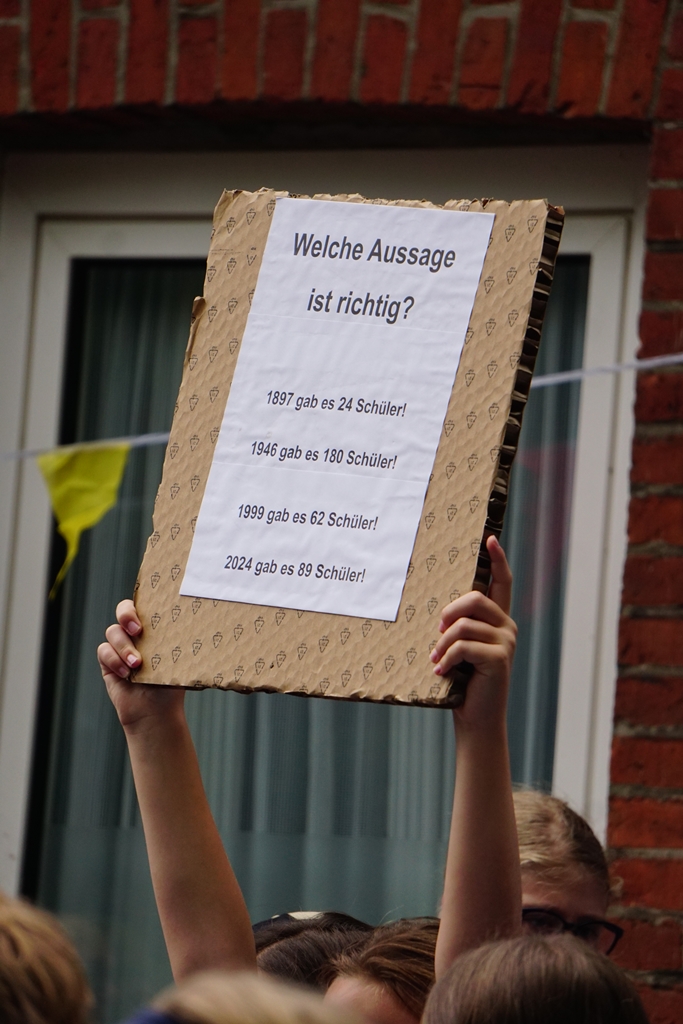 Welche Aussage
ist richtig?
1897 gab es 24 Schüler!
1946 gab es 180 Schüler!
1999 gab es 62 Schüler!
2024 gab es 89 Schüler!